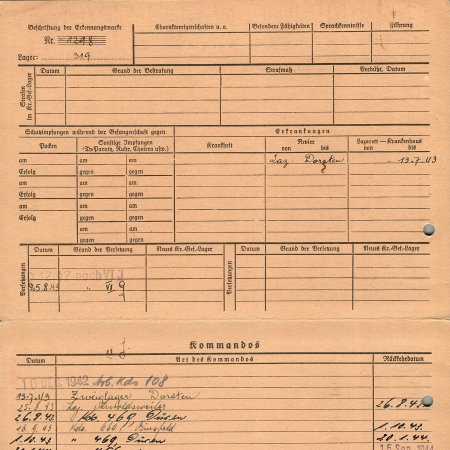 Beschriftung der Erkennungsmarke
Nr. 1248
Lager: 319
Charaktereigenschaften u. a.
Besondere Fähigkeiten
Sprachkenntnisse
Führung
Strafen im Kr.-Gef.-Lager
Datum
Grund der Bestrafung
Strafmaß
Verbüßt, Datum
Schutzimpfungen während der Gefangenschaft gegen
Erkrankungen
Pocken
Sonstige Impfungen
(Ty-Paraty, Ruhr, Cholera usw.)
Krankheit
Revier
von bis
Lazarett — Krankenhaus
von bis
am am am
Laz. Dorsten - 13.7.43
Erfolg gegen gegen
am am am
Erfolg gegen gegen
am am am
Erfolg gegen gegen
am am
gegen gegen
Versetzungen
Datum
Grund der Versetzung
Neues Kr.-Gef.-Lager
Versetzungen
Datum
Grund der Versetzung
Neues Kr.-Gef.-Lager
nach VI J
" VI G
Kommandos
Datum
Art des Kommandos
Rückkehrdatum
1942 Arb. Kdo 108
13.7.43 Zweiglager Dorsten
25.8.43 Lag. Arnoldsweiler
26.8.43 Kdo. 469 Düren 26.9.43
16.9.43 Kdo. 660 Bingfeld 1.10.43
1.10.43 " 469 Düren 20.1.44
15. Sep. 1944